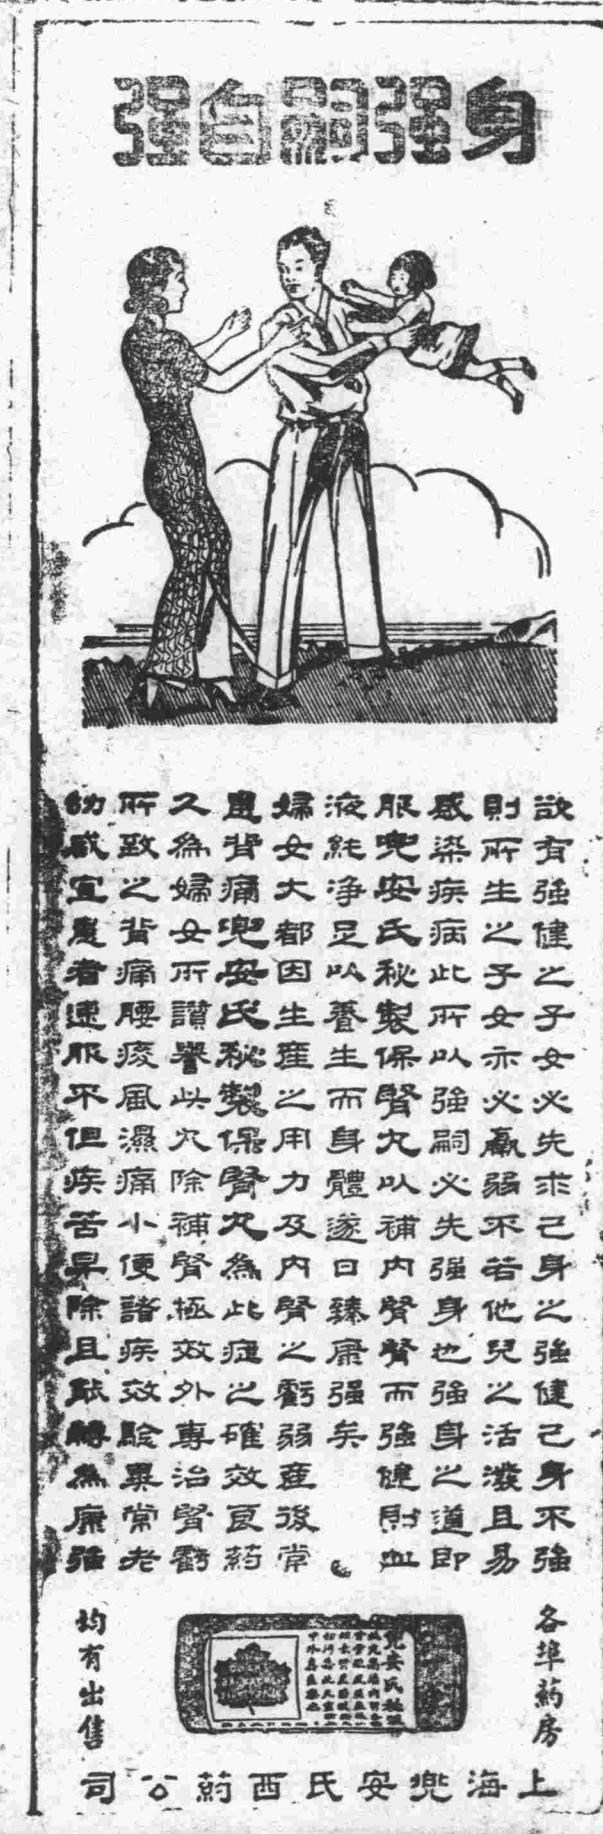 身强嗣自强
欲有强健之子女必先求己身之强健己身不强
則所生之子女亦必羸弱不若他兒之活潑且易
感染疾病此所以强嗣必先强身也强身之道即
服兜安氏秘製保腎丸以補內腎腎而强健則血
液純净足以養生而身體遂日臻康强矣
婦女大都因生產之用力及內腎之虧弱產後常
患背痛兜安氏秘製保腎丸為此症之確效良药
久為婦女所讚譽此丸除補腎極效外專治腎虧
所致之背痛腰痠風濕痛小便諸疾效驗異常老
幼咸宜患者速服不但疾苦早除且能轉為康强
各埠药房
均有出售
兜安氏秘
上海兜安氏西药公司